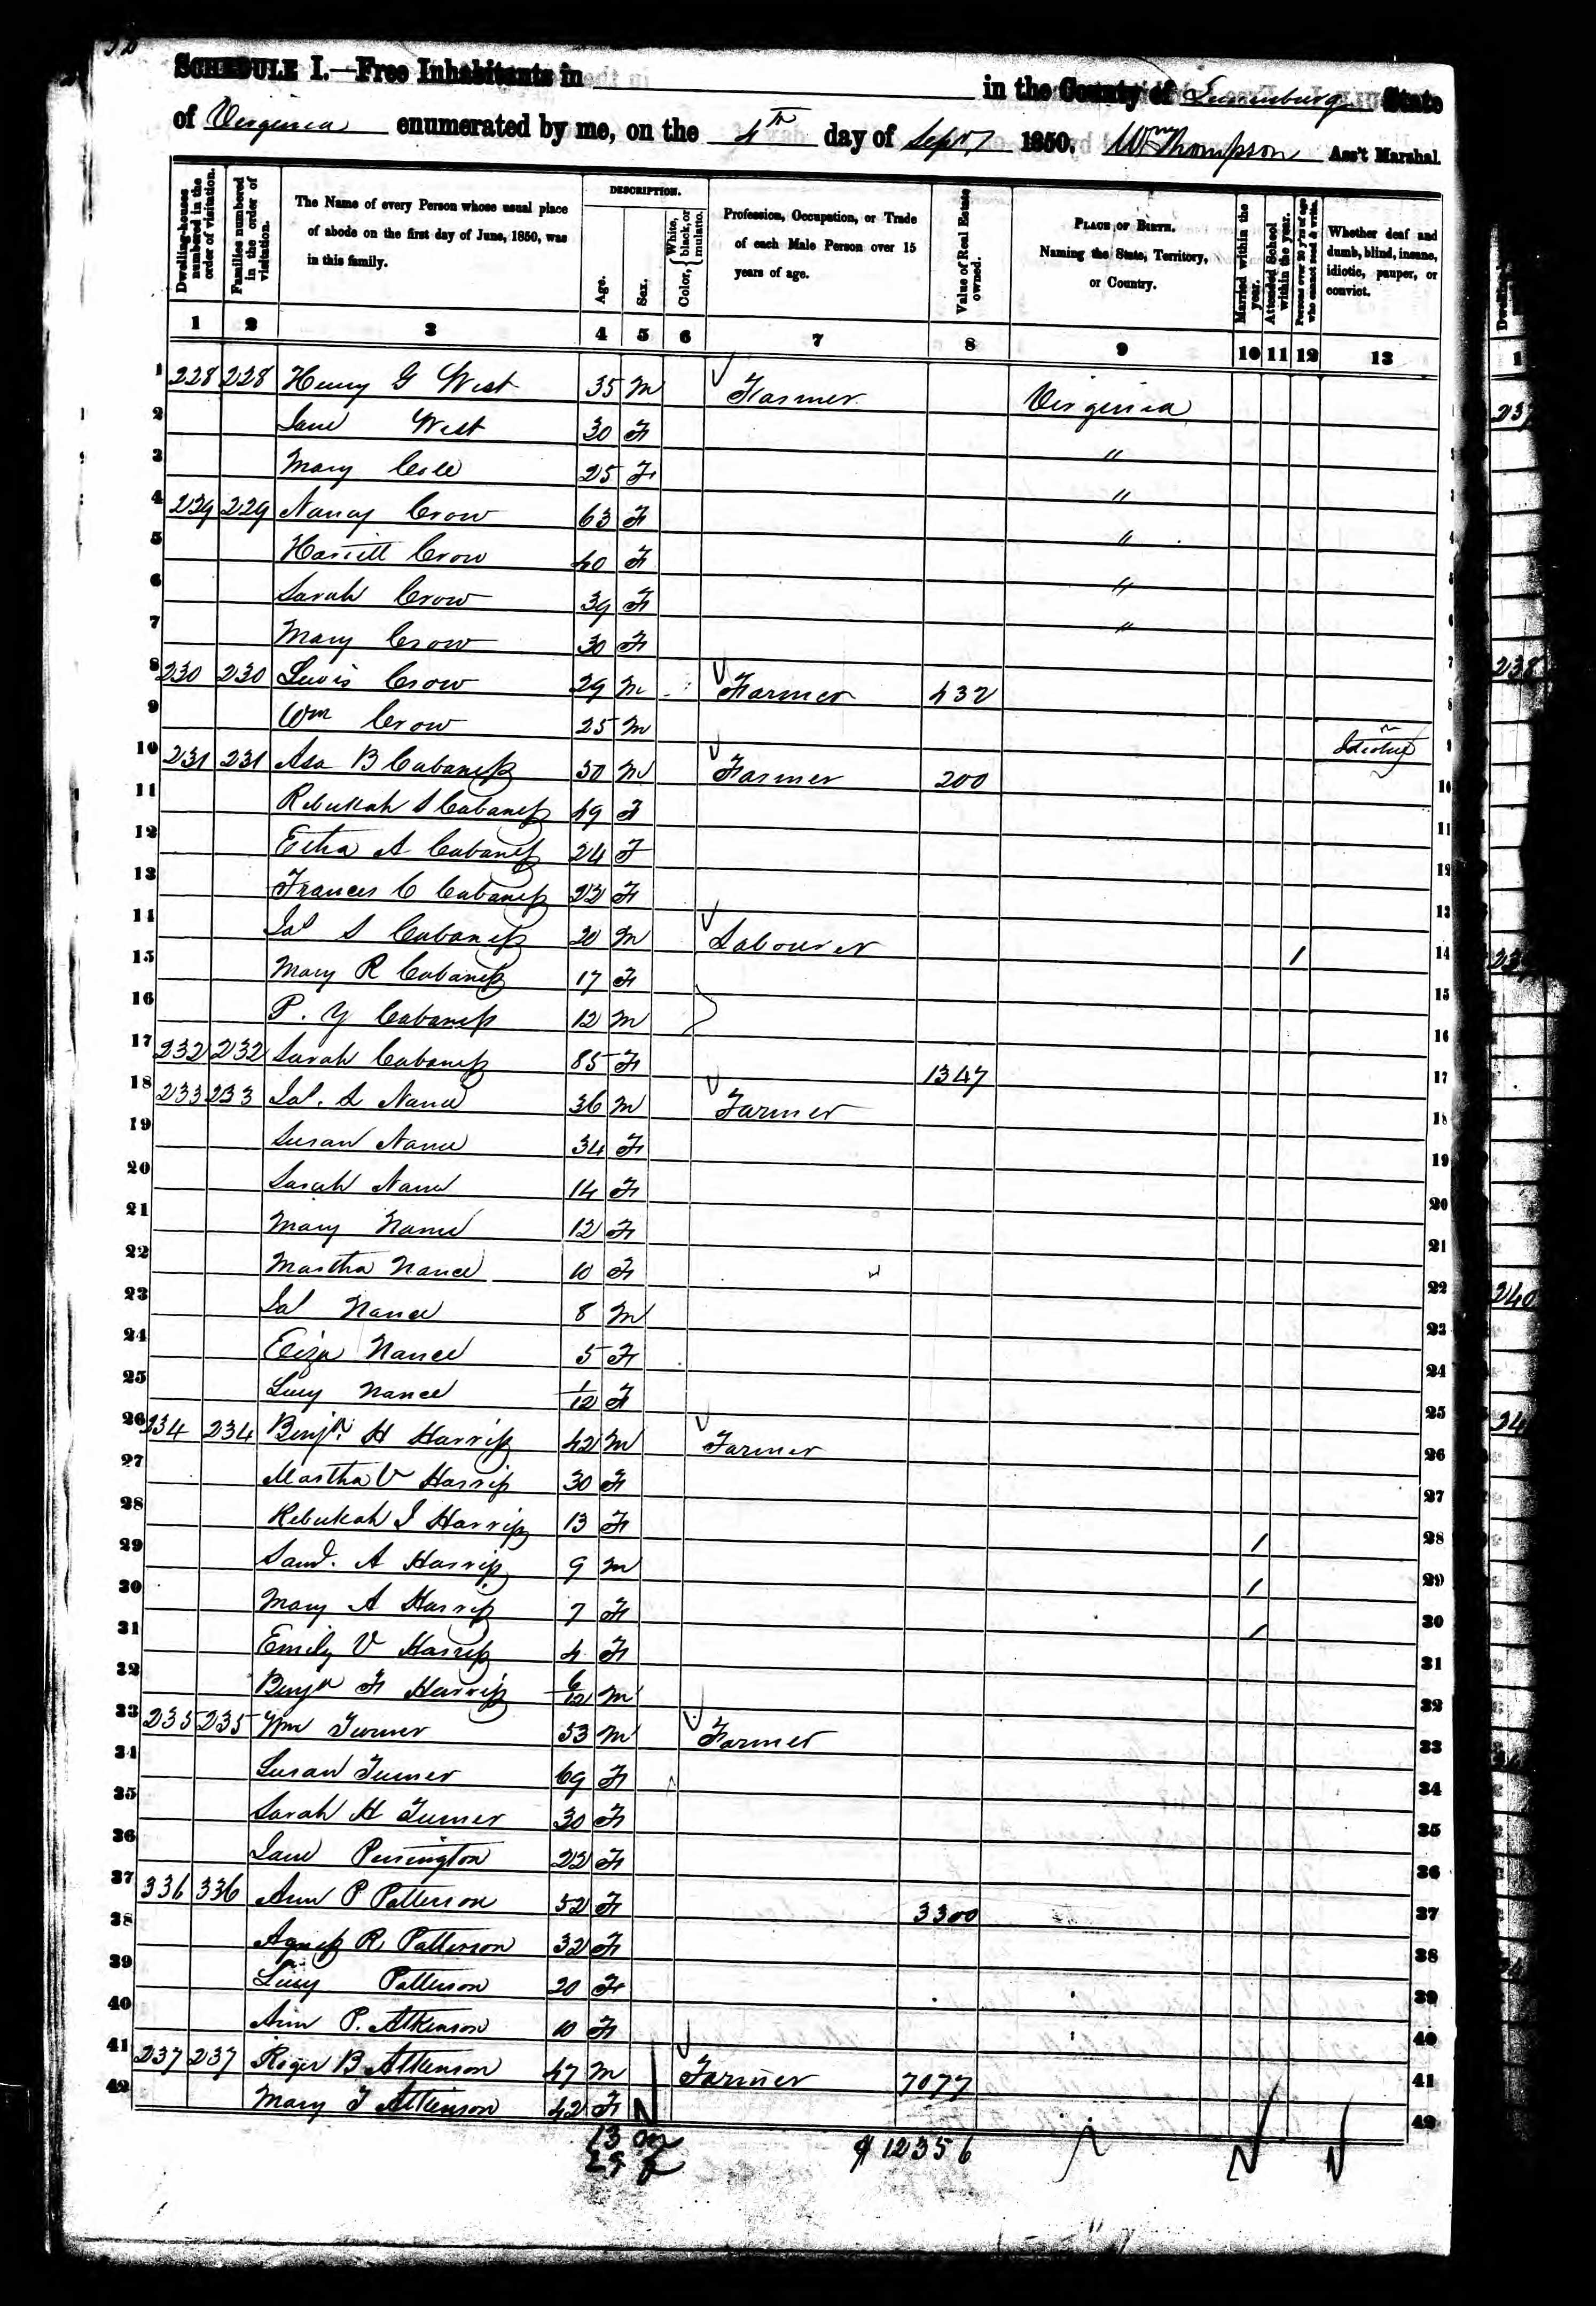 SCHEDULE I.—Free Inhabitants in in the County of Lunenburg State
of Virginia enumerated by me, on the 4th day of Sept, 1850. Wm Thompson Ass't Marshal.
Dwelling-houses numbered in the order of visitation.
Families numbered in the order of visitation.
The Name of every Person whose usual place of abode on the first day of June, 1850, was in this family.
DESCRIPTION.
Age.
Sex.
Color, White, black, or mulatto.
Profession, Occupation, or Trade of each Male Person over 15 years of age.
Value of Real Estate owned.
PLACE OF BIRTH. Naming the State, Territory, or Country.
Married within the year.
Attended School within the year.
Persons over 20 y'rs of age who cannot read & write.
Whether deaf and dumb, blind, insane, idiotic, pauper, or convict.
1 2 3 4 5 6 7 8 9 10 11 12 13
1 228 228 Henry G West 35 M Farmer Virginia
2 Jane West 30 F "
3 Mary 25 F "
4 229 229 Nancy Crow 63 F "
5 Harriett Crow 40 F "
6 Sarah Crow 39 F "
7 Mary Crow 30 F
8 230 230 Lewis Crow 29 M Farmer 432
9 Wm Crow 25 M
10 231 231 Asa B Cabaness 50 M Farmer 200
11 Rebekah S Cabaness 49 F
12 A Cabaness 24 F
13 Frances C Cabaness 22 F
14 Jas S Cabaness 20 M Labourer 1
15 Mary R Cabaness 17 F
16 P. Y Cabaness 12 M
17 232 232 Sarah Cabaness 85 F 1347
18 233 233 Jas. L Nance 36 M Farmer
19 Susan Nance 34 F
20 Sarah Nance 14 F
21 Mary Nance 12 F
22 Martha Nance 10 F
23 Jas Nance 8 M
24 Eliza Nance 5 F
25 Lucy Nance 1/12 F
26 234 234 Benjn. H Harriss 42 M Farmer
27 Martha V Harriss 30 F
28 Rebekah J Harriss 13 F 1
29 Saml. A Harriss 9 M 1
30 Mary A Harriss 7 F 1
31 Emily V Harriss 4 F
32 Benjn F Harriss 6/12 M
33 235 235 Wm Turner 53 M Farmer
34 Susan Turner 69 F
35 Sarah H Turner 30 F
36 Jane Pennington 22 F
37 336 336 Ann P Patterson 52 F 3300
38 Agness R Patterson 32 F
39 Lucy Patterson 20 F
40 Ann P. Atkinson 10 F
41 237 237 Roger B Atkinson 47 M Farmer 7077
42 Mary T Atkinson 42 F
13 m $ 12356
29 f